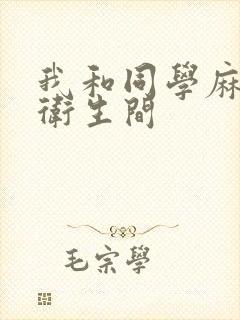 我和同學麻
衛生間
毛宗學